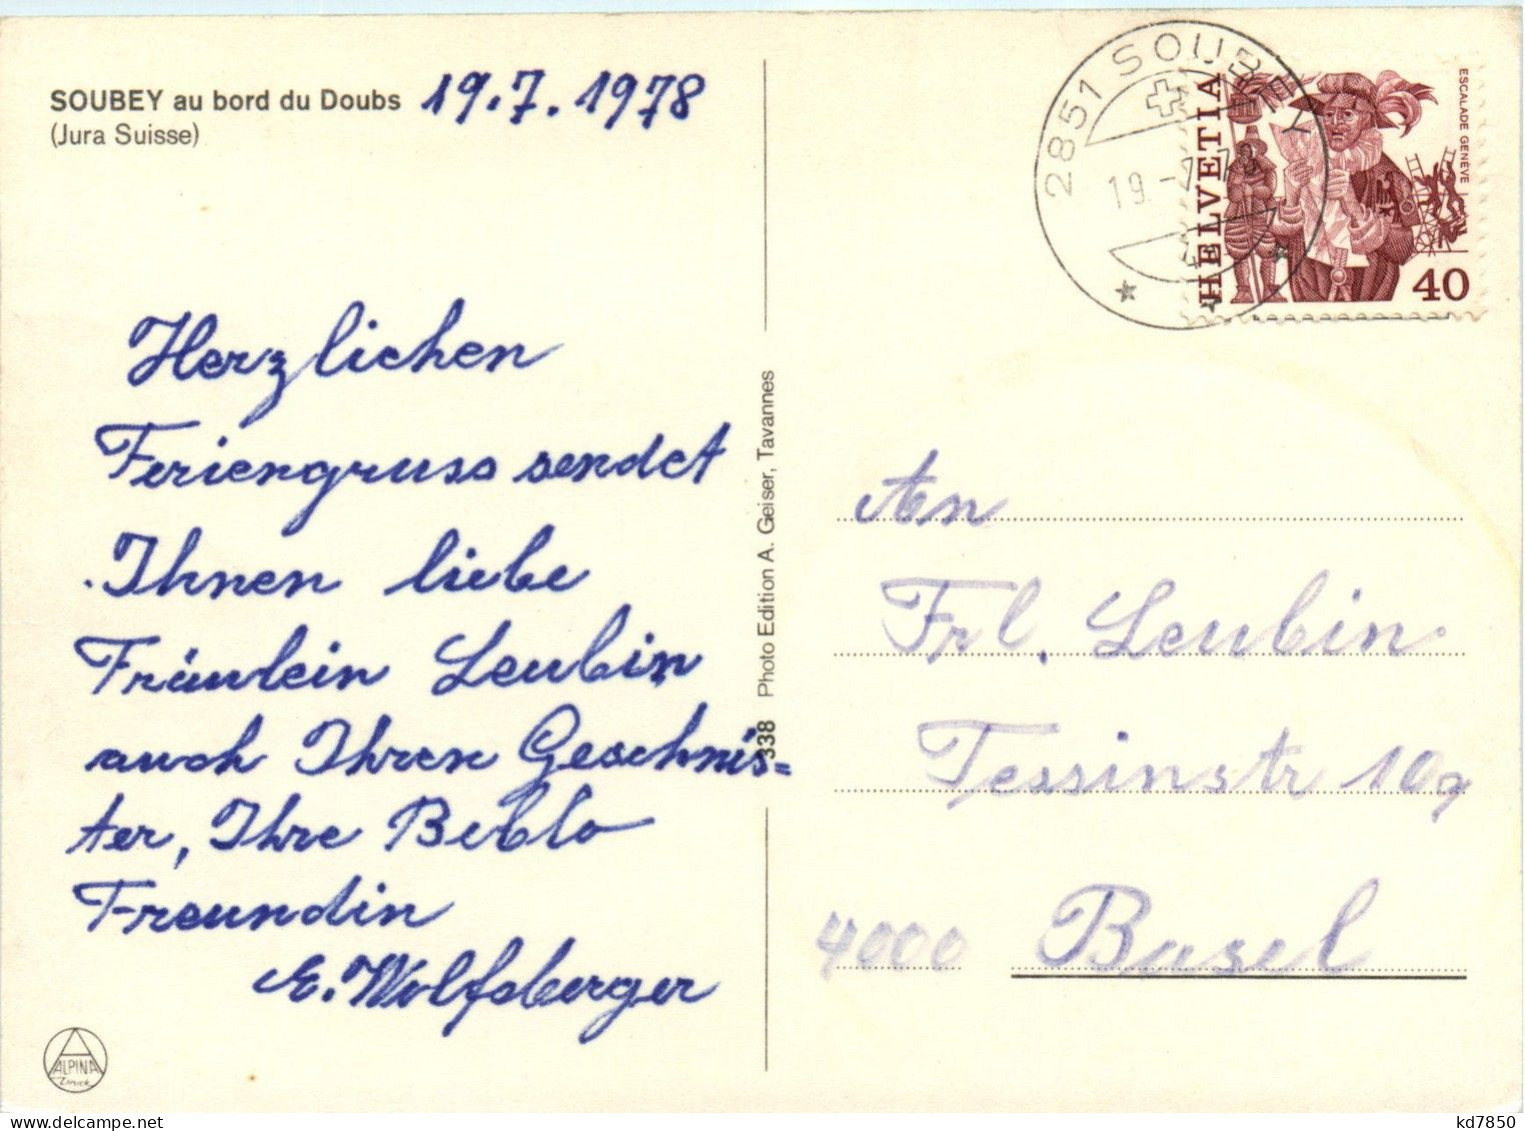 SOUBEY au bord du Doubs 19.7.1978
(Jura Suisse)
Herzlichen
Feriengruss sendet
Ihnen liebe
Fräulein Leubin
auch Ihren Geschwis=
ter, Ihre
Freundin
E. Wolfsberger
ALPINA
338 Photo Edition A. Geiser, Tavannes
2851 SOUBEY
19.-7.78
HELVETIA
ESCALADE GENÈVE
40
An
Frl. Leubin
Tessinstr 10
4000 Basel
kd7850